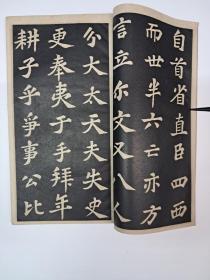 自首省直臣四西
而世半六亡亦方
言立尔文又八人
分大太天夫失史
更奉夷于手拜年
耕子乎爭事公比